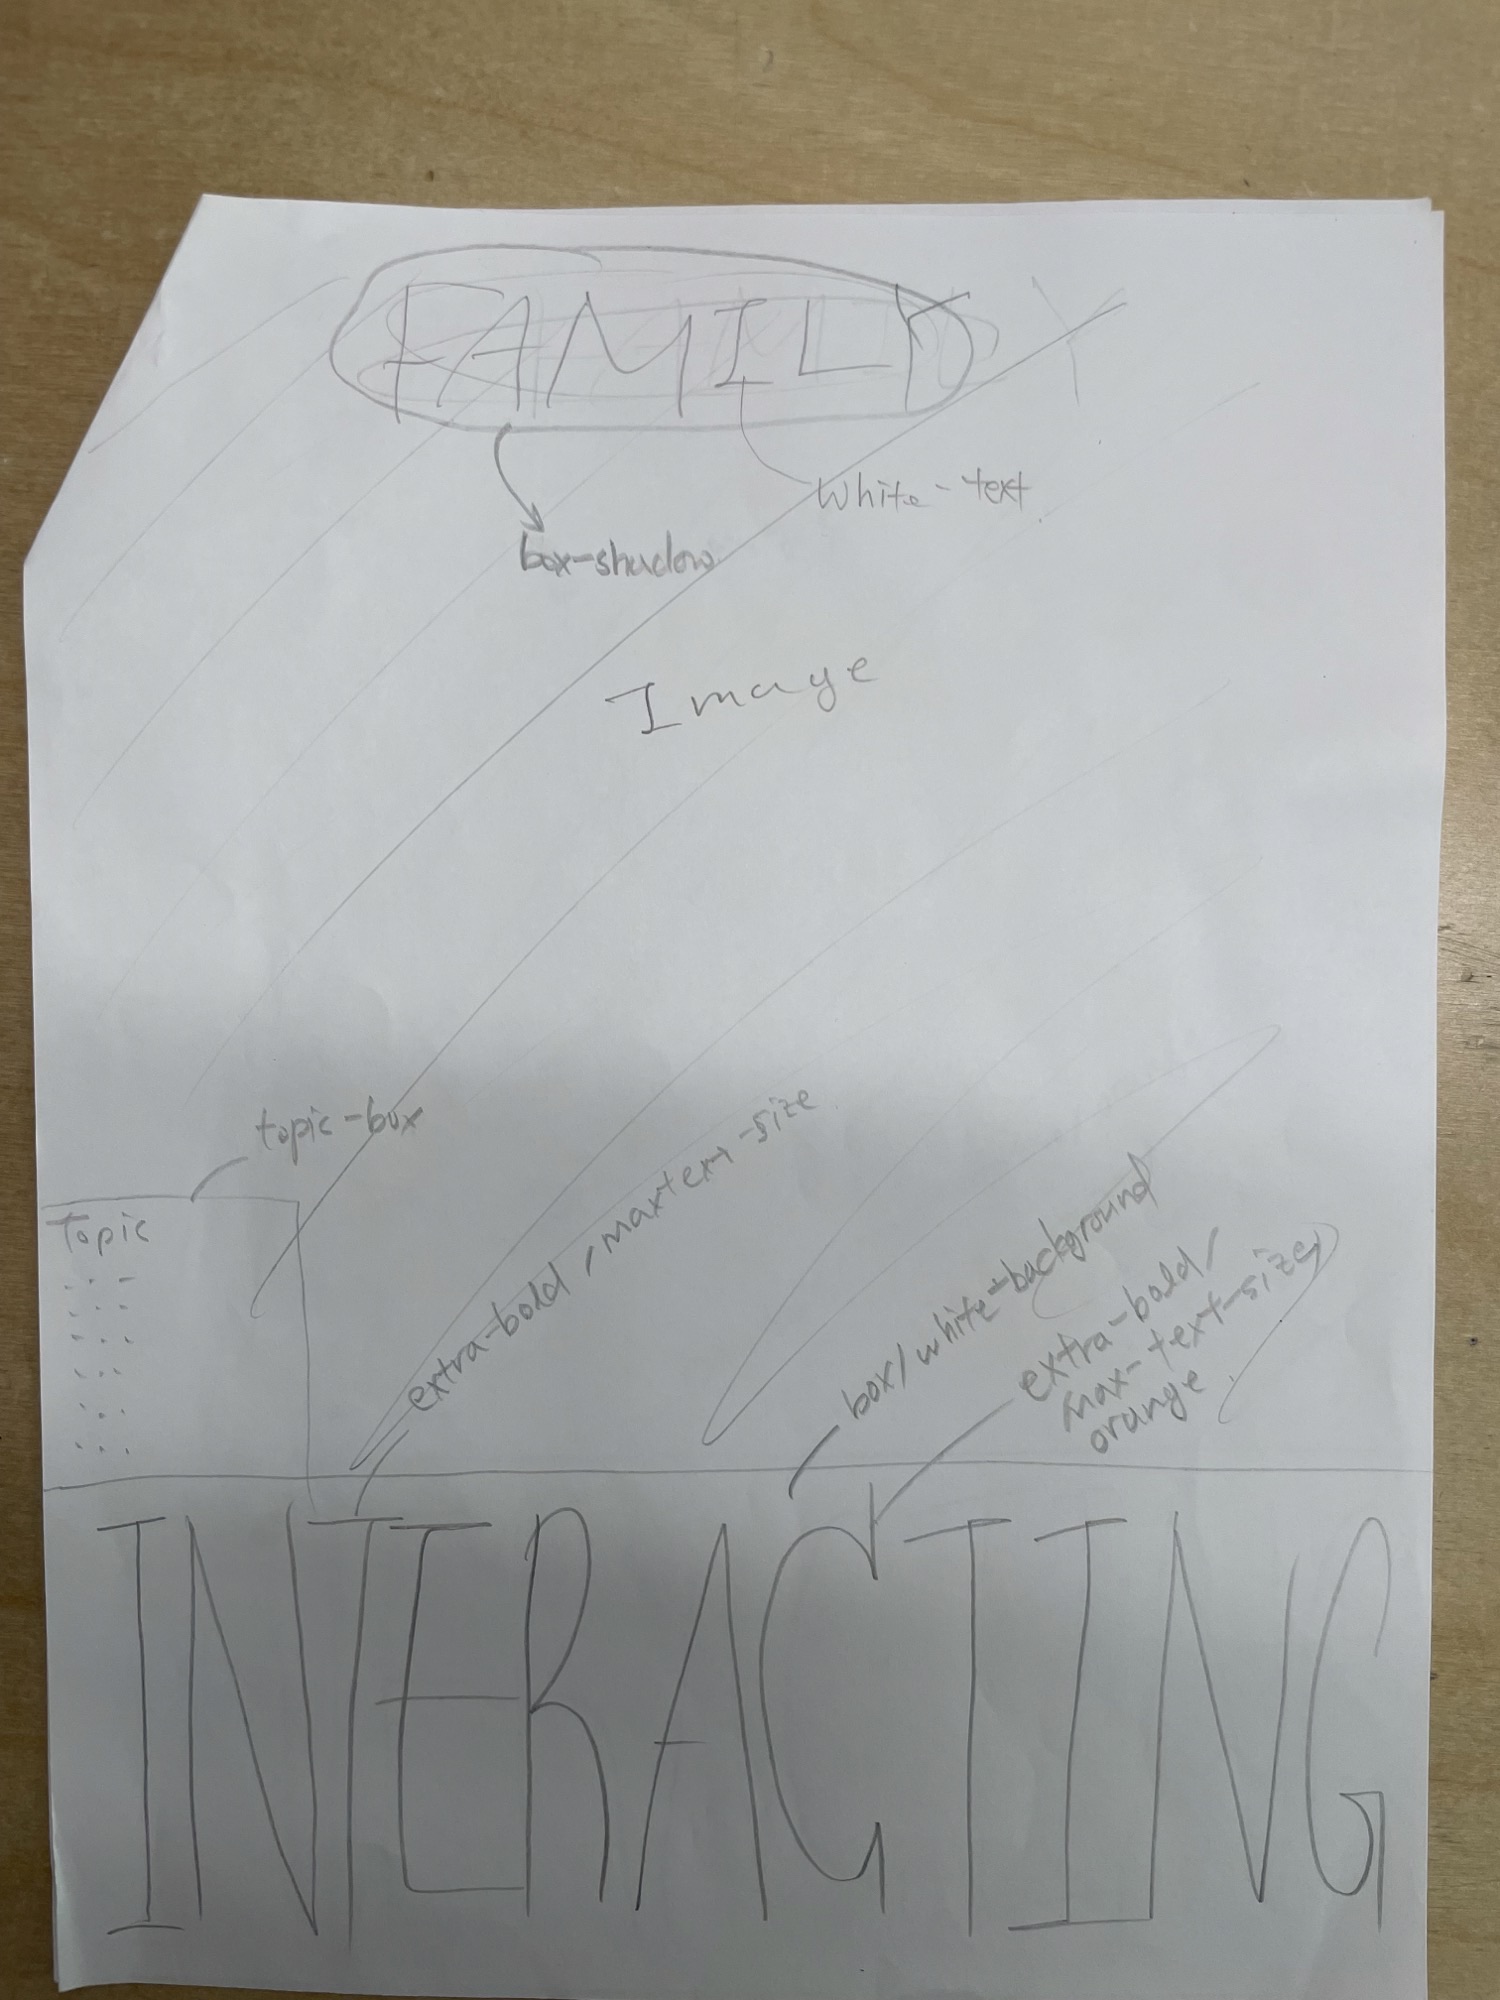 FAMILY
White-text
box-shadow
Image
topic-box
Topic
extra-bold, max text-size
box/white-background
extra-bold,
max-text-size,
orange
INTERACTING